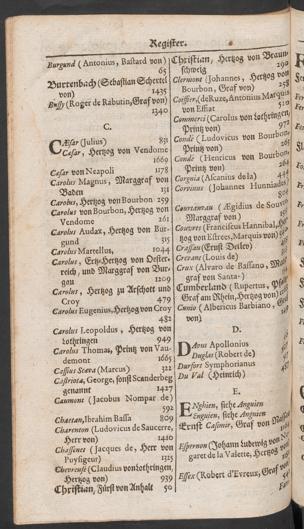 Register.
Burgund (Antonius, Bastard von)
65
Burtenbach (Sebastian Schertel
von) 1435
Bussy (Roger de Rabutin, Graf von)
1340
C.
CÆsar (Julius) 831
Cæsar, Hertzog von Vendome
1669
Cæsar von Neapoli 1178
Carolus Magnus, Marggraf von
Baden 131
Carolus, Hertzog von Bourbon 259
Carolus von Bourbon, Hertzog von
Vendome 261
Carolus Audax, Hertzog von Bur-
gund 315
Carolus Martellus, 1044
Carolus, Ertz-Hertzog von Oester-
reich, und Marggraf von Bur-
gau 1209
Carolus, Hertzog zu Arschott und
Croy 479
Carolus Eugenius, Hertzog von Croy
482
Carolus Leopoldus, Hertzog von
Lothringen 949
Carolus Thomas, Printz von Vau-
demont 1665
Cassius Scæva (Marcus) 322
Castriota, George, sonst Scanderbeg
genannt 1427
Caumont (Jacobus Nompar de)
592
Chaetan, Ibrahim Bassa 809
Charenton (Ludovicus de Saucerre,
Herr von) 1410
Chassenet (Jacques de, Herr von
Puysigeur) 1315
Chevreuse (Claudius von Lothringen,
Hertzog von) 939
Christian, Fürst von Anhalt 50
Christian, Hertzog von Braun-
schweig 290
Clermont (Johannes, Hertzog von
Bourbon, Graf von) 258
(de Ruze, Antonius Marquis
von Effiat 510
Commerci (Carolus von Lothringen,
Printz von) 972
Condé (Ludovicus von Bourbon,
Printz von)
Condé (Henricus von Bourbon,
Printz von) 264
Corgnia (Ascanius de la) 444
Corvinus (Johannes Hunniades)
Courtenvau (Ægidius de Souvre,
Marggraf von)
Couvres (Franciscus Hannibal, Hert-
zog von Estrees, Marquis von)
Crassau (Ernst Detlev)
(Louis de)
Crux (Alvaro de Bassano, Marg-
graf von Santa-)
Cumberland (Rupertus, Pfaltz-
Graf am Rhein, Hertzog von)
Cunio (Albericus Barbiano, Graf
von)
D.
DAvus Apollonius
Duglas (Robert de)
Dursort Symphorianus
Du Val (Heinrich)
E.
ENghien, siehe Anguien
Enguien, siehe Anguien
Ernst Casimir, Graf von Nassau
Espernon (Johann Ludewig von No-
garet de la Valette, Hertzog von)
Essex (Robert d'Evreux, Graf von)